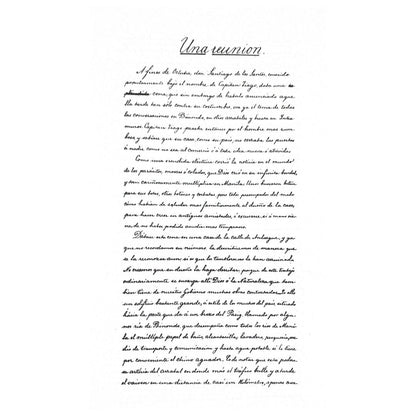 Una reunion.
A fines de Octubre, don Santiago de los Santos, conocido
popularmente bajo el nombre de Capitan Tiago, daba una
cena, que, sin embargo de haberlo anunciado aque
lla tarde tan sólo contra su costumbre, era ya el tema de todas
las conversaciones en Binondo, en otros arrabales y hasta en Intra
muros. Capitan Tiago pasaba entonces por el hombre mas rum
boso y sabíase que su casa, como su país, no cerraba las puertas
á nadie como no sea al comercio ó á toda idea nueva ó atrevida.
Como una sacudida eléctrica corrió la noticia en el mundo
de los parásitos, moscas ó colados, que Dios crió en su infinita bondad,
y tan cariñosamente multiplica en Manila. Unos buscaron betun
para sus botas, otros botones y corbatas pero todos preocupados del modo
como habian de saludar mas familiarmente al dueño de la casa
para hacer creer en antiguas amistades, ó escusarse, si á mano vie
ne, de no haber podido acudir mas temprano.
Dábase esta cena en una casa de la calle de Anloague, y ya
que no recordamos su número, la describiremos de manera que
se la reconozca aun, si es que los temblores no la han arruinado.
No creemos que su dueño la haya derribar, porque de este trabajo
ordinariamente se encarga allí Dios ó la Naturaleza que tam
bien tiene de nuestro Gobierno muchas obras contratadas. Es ella
un edificio bastante grande, al estilo de los muchos del país, situado
hácia la parte que da á un brazo del Pásig, llamado por algu
nos ria de Binondo, que desempeña como todos los rios de Mani
la el múltiple papel de baño, alcantarilla, lavadero, pesquería, me
dio de transporte y comunicacion y hasta agua potable si lo tiene
por conveniente el chino aguador. Es de notar que esta pode
rosa arteria del arrabal en donde más el tráfico bulle y aturde
el vaiven en una distancia de casi un kilómetro, apenas cuen